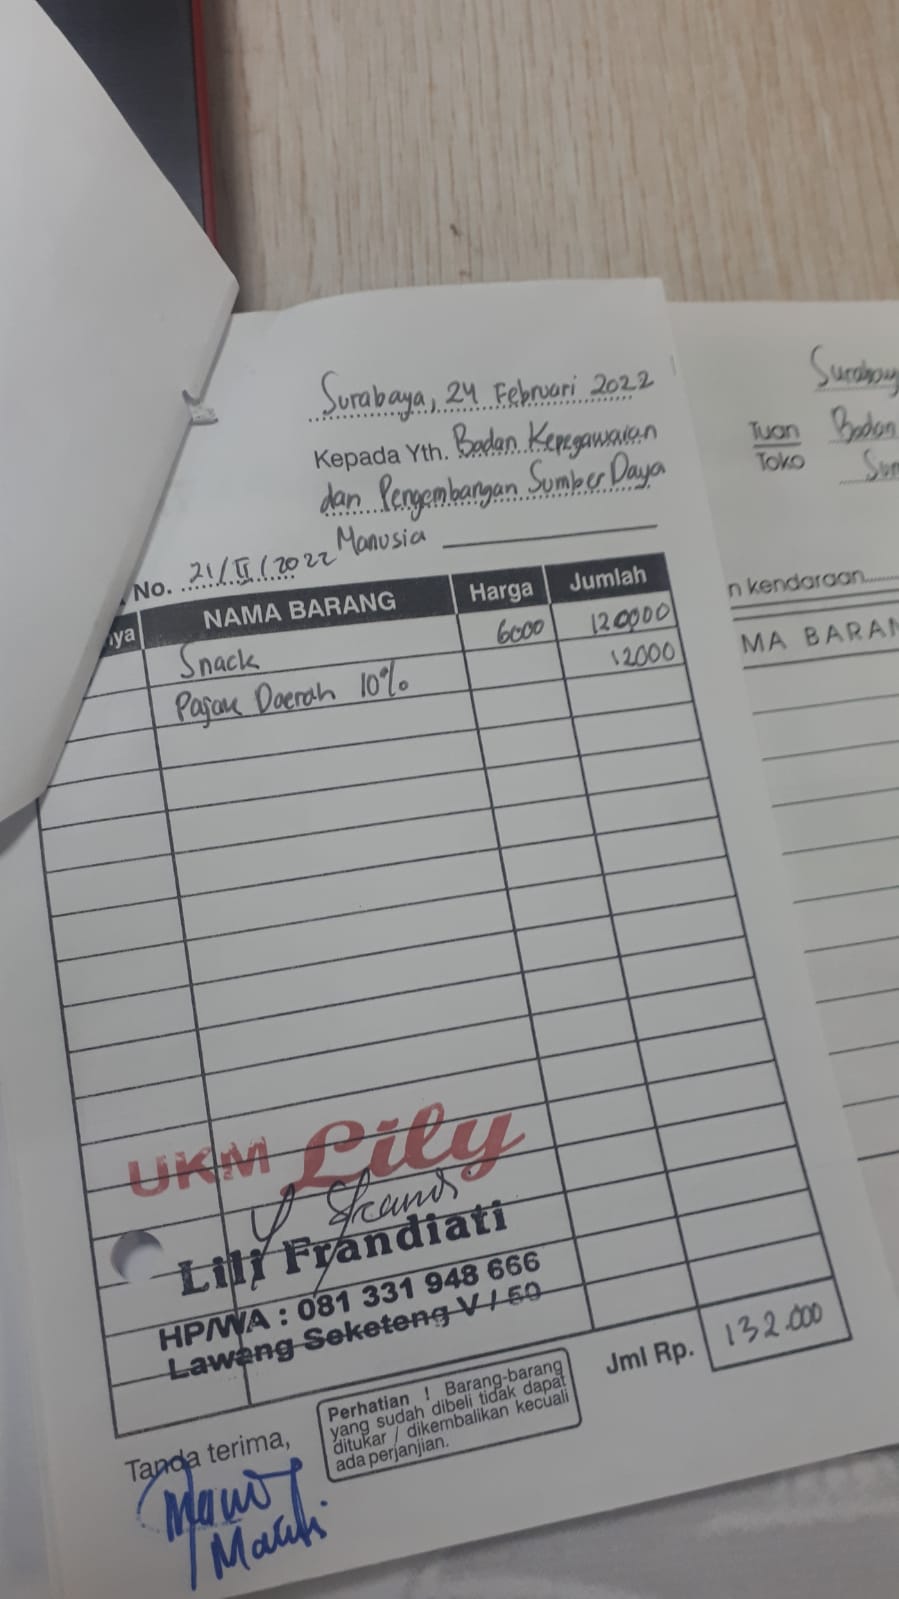 Surabaya, 24 Februari 2022
Kepada Yth. Badan Kepegawaian
dan Pengembangan Sumber Daya
Manusia
No. 21/II/2022
nya NAMA BARANG Harga Jumlah
Snack 6000 120000
Pajak Daerah 10% 12000
UKM Lily
Lili Frandiati
HP/WA : 081 331 948 666
Lawang Seketeng V / 50
Jml Rp. 132.000
Tanda terima,
Perhatian ! Barang-barang
yang sudah dibeli tidak dapat
ditukar / dikembalikan kecuali
ada perjanjian.
Surabay
Tuan Badan
Toko Sum
n kendaraan
MA BARAN